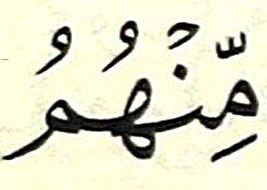 مِّنۡهُمُ